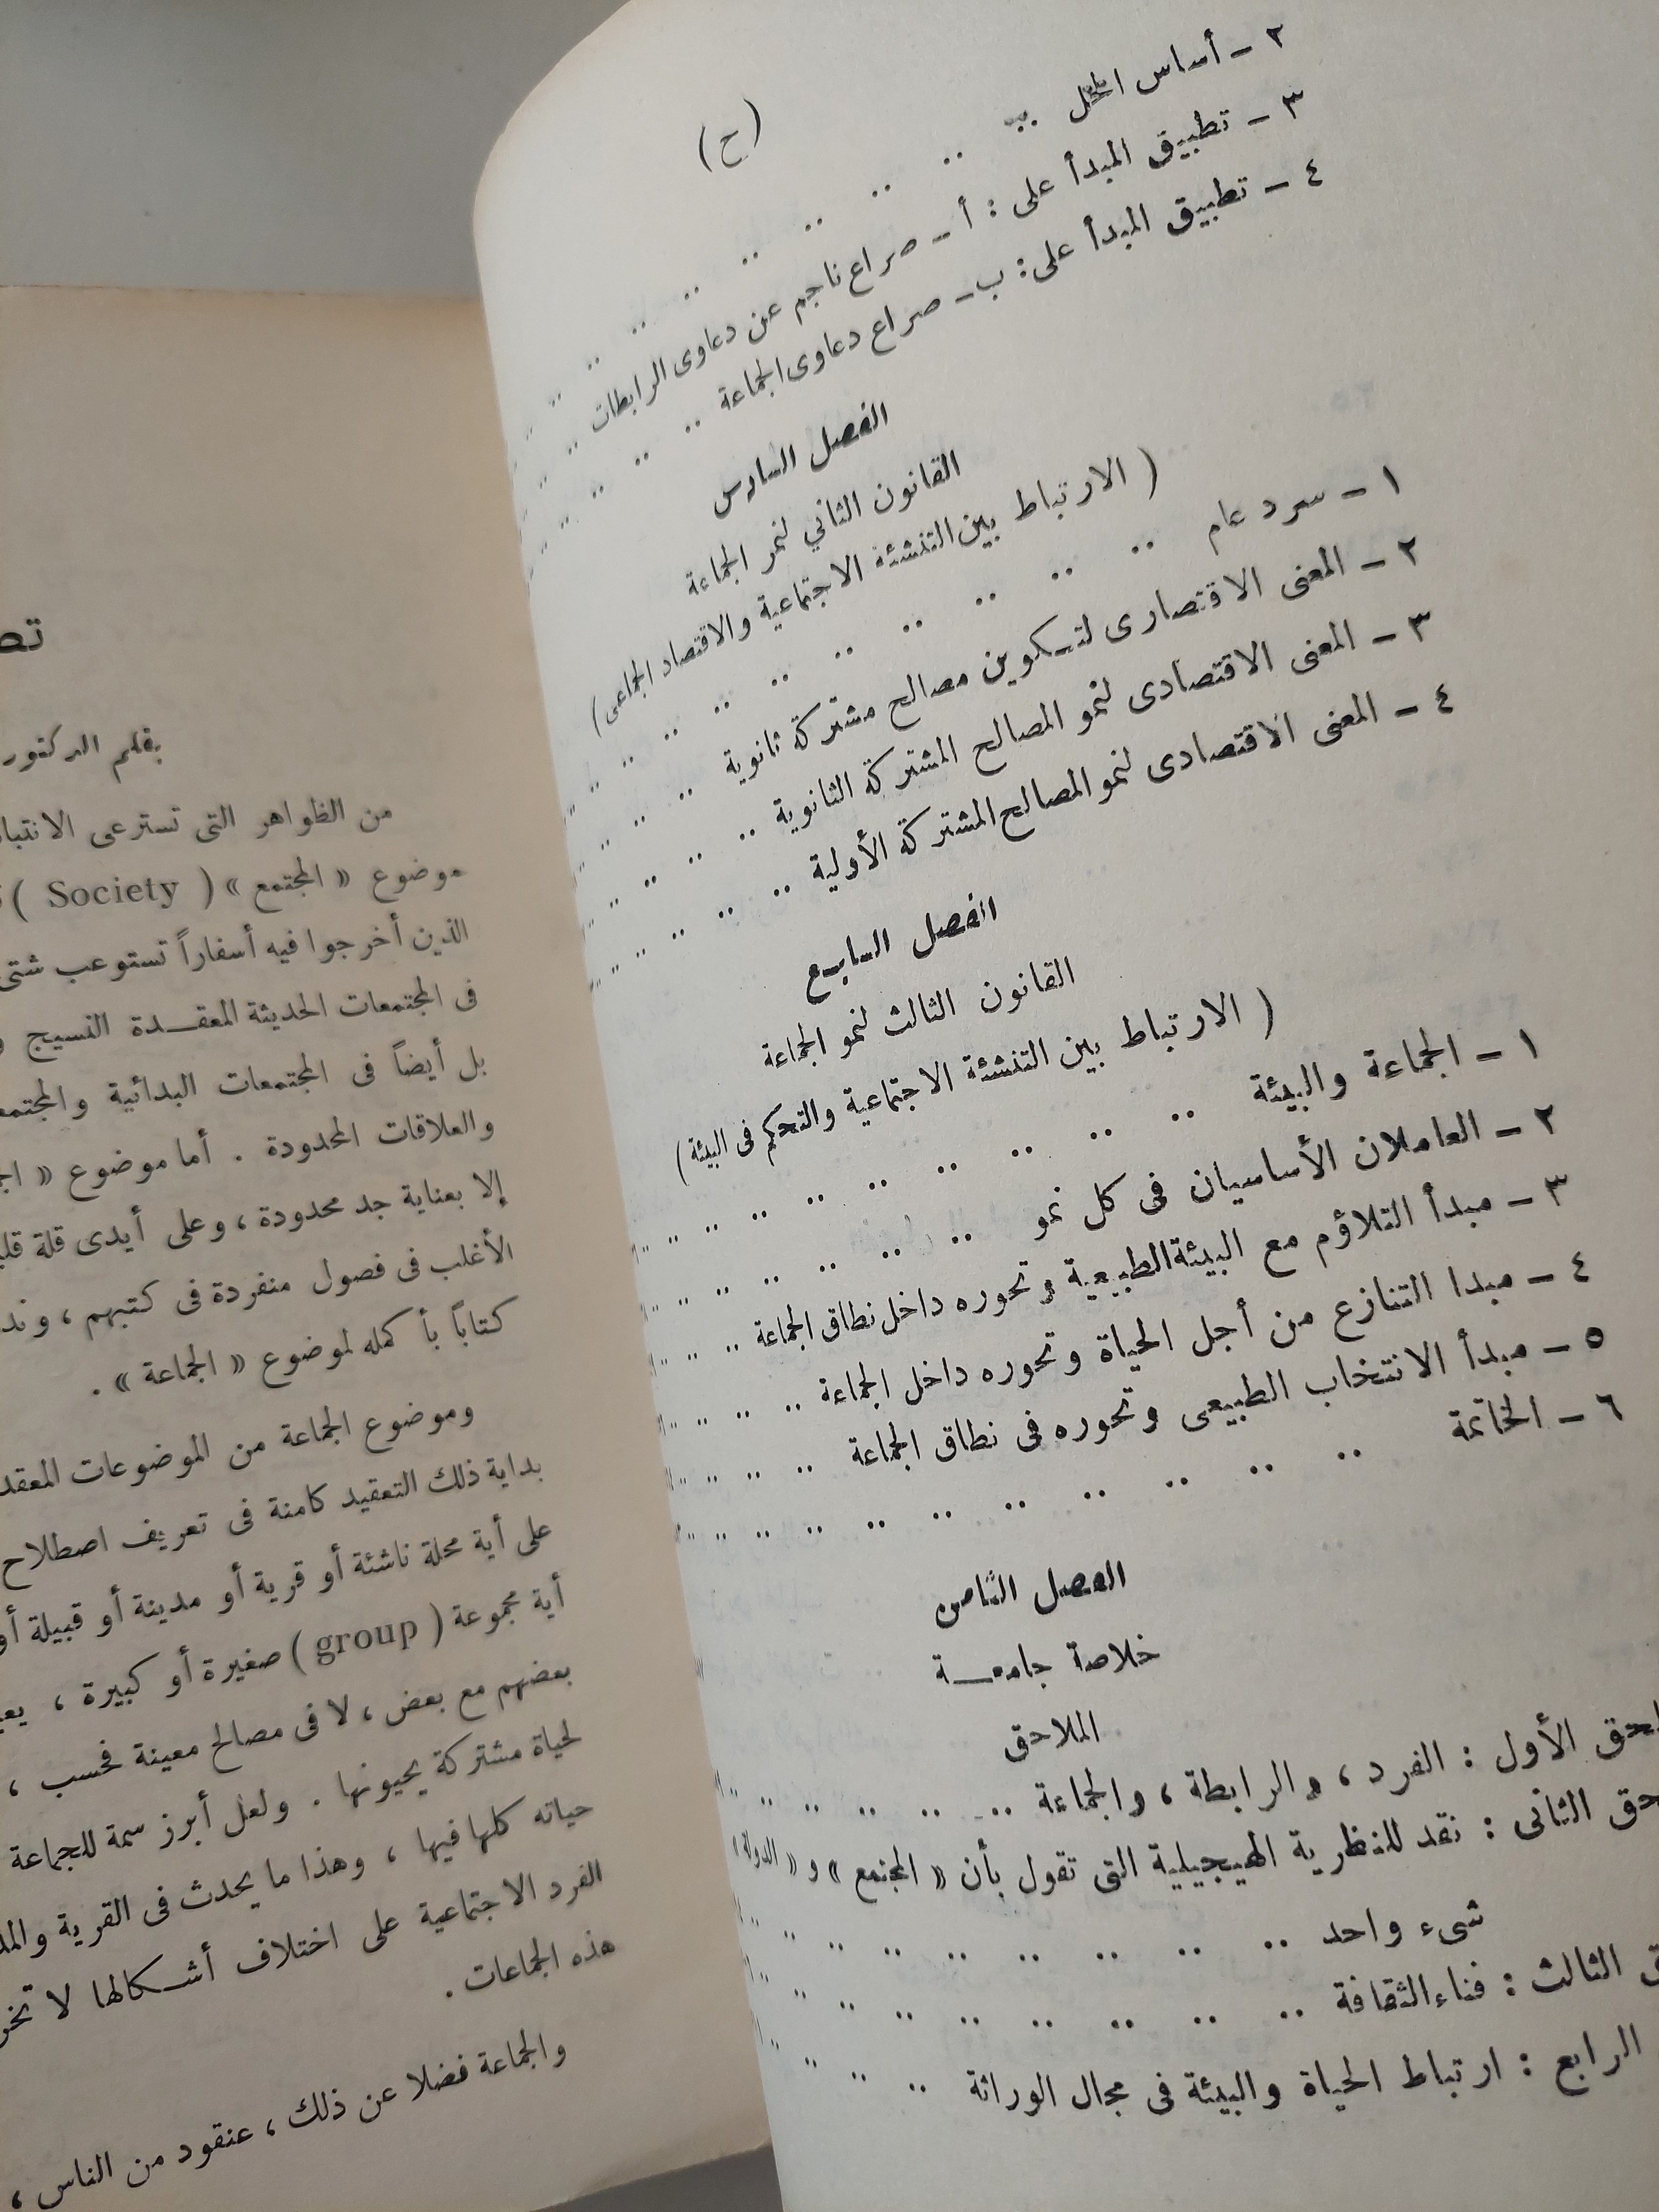 (ح)
٢ – أساس الحل
٣ – تطبيق المبدأ على : أ – صراع ناجم عن دعاوى الرابطات
٤ – تطبيق المبدأ على : ب – صراع دعاوى الجماعة
الفصل السادس
القانون الثاني لنمو الجماعة
( الارتباط بين التنشئة الاجتماعية والاقتصاد الجماعى )
١ – سرد عام
٢ – المعنى الاقتصادى لتكوين مصالح مشتركة ثانوية
٣ – المعنى الاقتصادى لنمو المصالح المشتركة الثانوية
٤ – المعنى الاقتصادى لنمو المصالح المشتركة الأولية
الفصل السابع
القانون الثالث لنمو الجماعة
( الارتباط بين التنشئة الاجتماعية والتحكم فى البيئة )
١ – الجماعة والبيئة
٢ – العاملان الأساسيان فى كل نمو
٣ – مبدأ التلاؤم مع البيئة الطبيعية وتحوره داخل نطاق الجماعة
٤ – مبدا التنازع من أجل الحياة وتحوره داخل الجماعة
٥ – مبدأ الانتخاب الطبيعى وتحوره فى نطاق الجماعة
٦ – الخاتمة
الفصل الثامن
خلاصة جامعة
الملاحق
الأول : الفرد ، والرابطة ، والجماعة
الثانى : نقد للنظرية الهيجيلية التى تقول بأن « المجتمع » و « الدولة »
شىء واحد
الثالث : فناء الثقافة
الرابع : ارتباط الحياة والبيئة فى مجال الوراثة
بقلم الدكتور
من الظواهر التى تسترعى
موضوع « المجتمع » ( Society )
الذين أخرجوا فيه أسفاراً تستوعب شتى
فى المجتمعات الحديثة المعقدة النسيج
بل أيضاً فى المجتمعات البدائية
والعلاقات المحدودة . أما موضوع «
إلا بعناية جد محدودة ، وعلى أيدى قلة
الأغلب فى فصول منفردة فى كتبهم ،
كتاباً بأكمله لموضوع « الجماعة » .
وموضوع الجماعة من الموضوعات
بداية ذلك التعقيد كامنة فى تعريف اصطلاح
على أية محلة ناشئة أو قرية أو مدينة أو قبيلة أو
أية مجموعة ( group ) صغيرة أو كبيرة ،
بعضهم مع بعض ، لا فى مصالح معينة فحسب ،
لحياة مشتركة يحيونها . ولعل أبرز سمة للجماعة
حياته كلها فيها ، وهذا ما يحدث فى القرية
الفرد الاجتماعية على اختلاف أشكالها لا
هذه الجماعات .
والجماعة فضلا عن ذلك ، عنقود من الناس ،